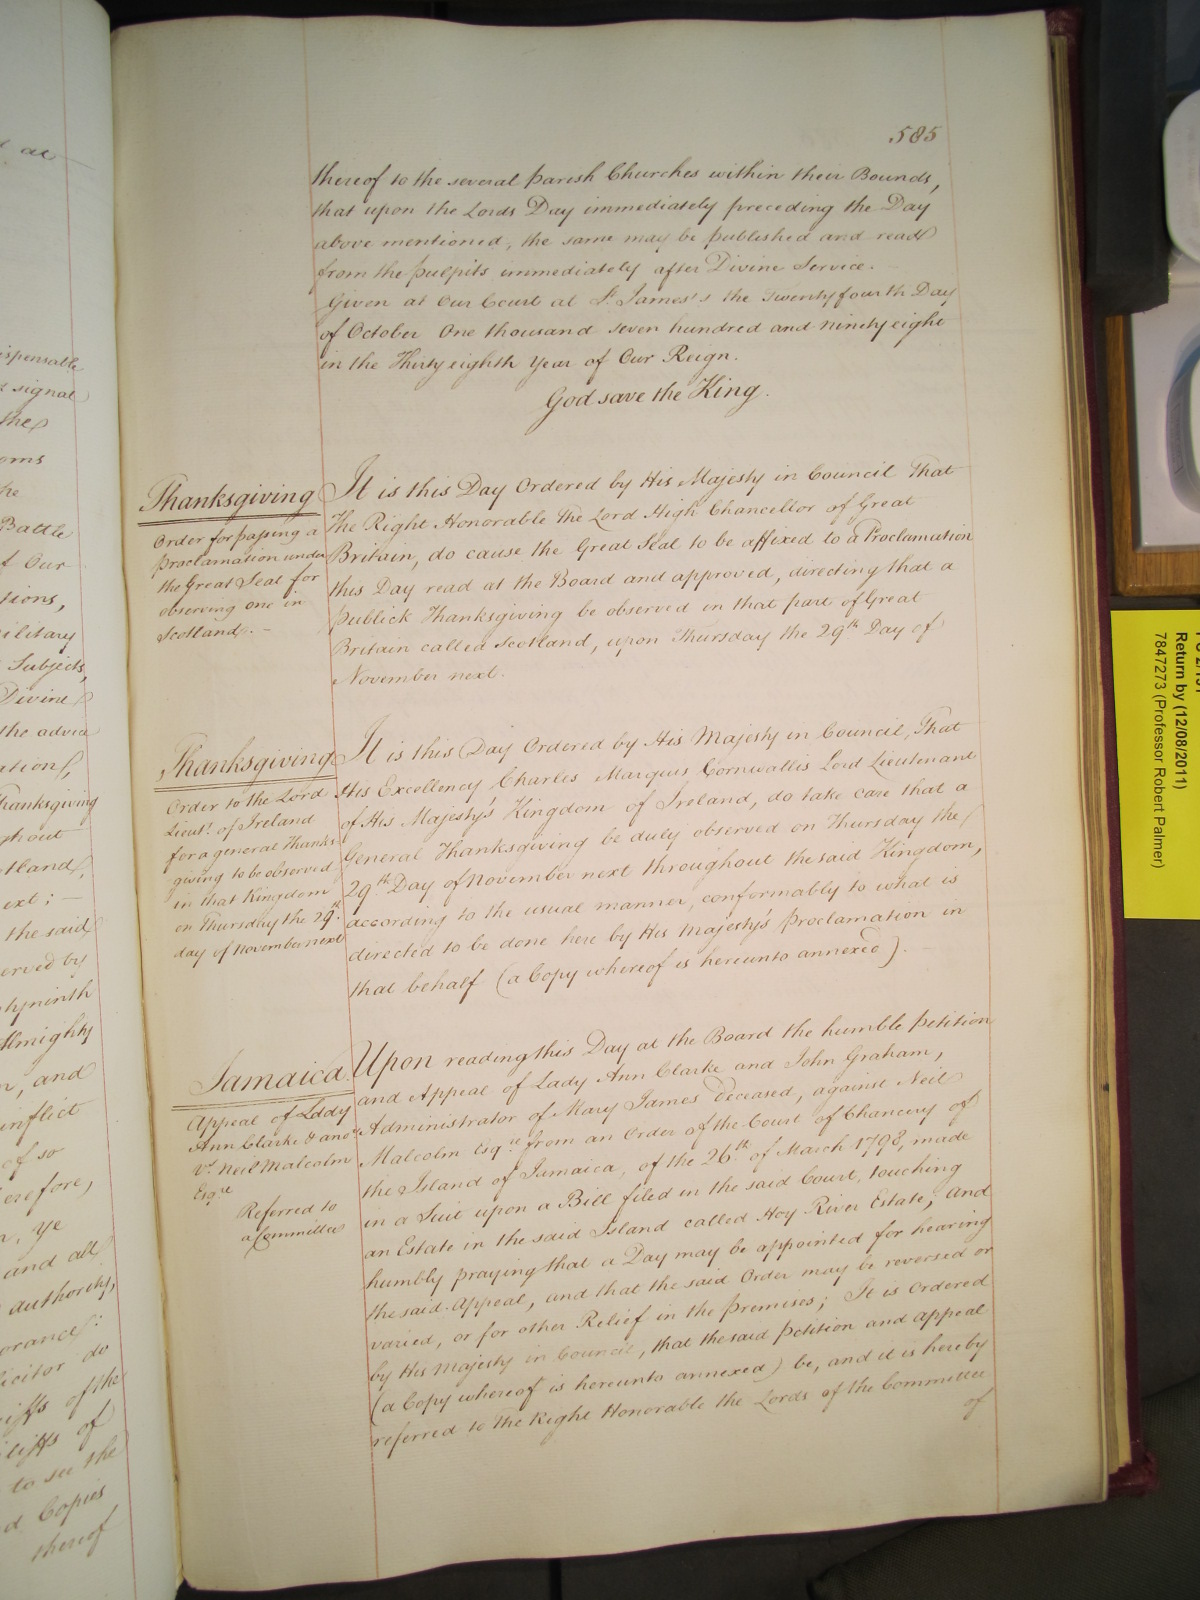 585
thereof to the several parish Churches within their Bounds,
that upon the Lords Day immediately preceding the Day
above mentioned, the same may be published and read
from the pulpits immediately after Divine Service.
Given at Our Court at St. James's the Twenty fourth Day
of October One thousand seven hundred and ninety eight
in the Thirty eighth Year of Our Reign.
God save the King.
Thanksgiving
Order for passing a
Proclamation under
the Great Seal for
observing one in
Scotland. –
It is this Day Ordered by His Majesty in Council That
The Right Honorable the Lord High Chancellor of Great
Britain, do cause the Great Seal to be affixed to a Proclamation
this Day read at the Board and approved, directing that a
publick Thanksgiving be observed in that part of Great
Britain called Scotland, upon Thursday the 29th Day of
November next.
Thanksgiving
Order to the Lord
Lieut. of Ireland
for a general Thanks
giving to be observed
in that Kingdom
on Thursday the 29th.
day of November next
It is this Day Ordered by His Majesty in Council, That
His Excellency Charles Marquis Cornwallis Lord Lieutenant
of His Majesty's Kingdom of Ireland, do take care that a
General Thanksgiving be duly observed on Thursday the
29th Day of November next throughout the said Kingdom,
according to the usual manner, conformably to what is
directed to be done here by His Majesty's Proclamation in
that behalf (a Copy whereof is hereunto annexed).
Jamaica.
Appeal of Lady
Ann Clarke & anor
vs. Neil Malcolm
Esqre
Referred to
a Committee
Upon reading this Day at the Board the humble petition
and Appeal of Lady Ann Clarke and John Graham,
Administrator of Mary James deceased, against Neil
Malcolm Esqre from an Order of the Court of Chancery of
the Island of Jamaica, of the 26th of March 1798, made
in a Suit upon a Bill filed in the said Court, touching
an Estate in the said Island called Hoy River Estate, and
humbly praying that a Day may be appointed for hearing
the said Appeal, and that the said Order may be reversed or
varied, or for other Relief in the Premises; It is Ordered
by His Majesty in Council, that the said petition and appeal
(a Copy whereof is hereunto annexed) be, and it is hereby
referred to The Right Honorable the Lords of the Committee
of
ispensable
signal
the
oms
he
Battle
f Our
tions,
military
Subjects,
Divine
the advice
ation,
Thanksgiving
ghout
otland,
ext; –
the said
erved by
tyninth
Almighty
n, and
inflict
of so
erefore,
n, Ye
and all
authority,
orance:
licitor do
iffs of the
iffs of
to see the
d Copies
thereof
Return by (12/08/2011)
7847273 (Professor Robert Palmer)